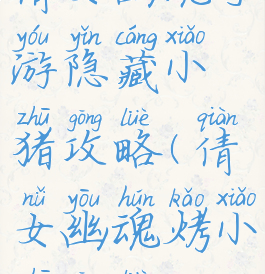 yóu yǐn cáng xiǎo
游隐藏小
zhū gōng lüè qiàn
猪攻略(倩
nǚ yōu hún kǎo xiǎo
女幽魂烤小